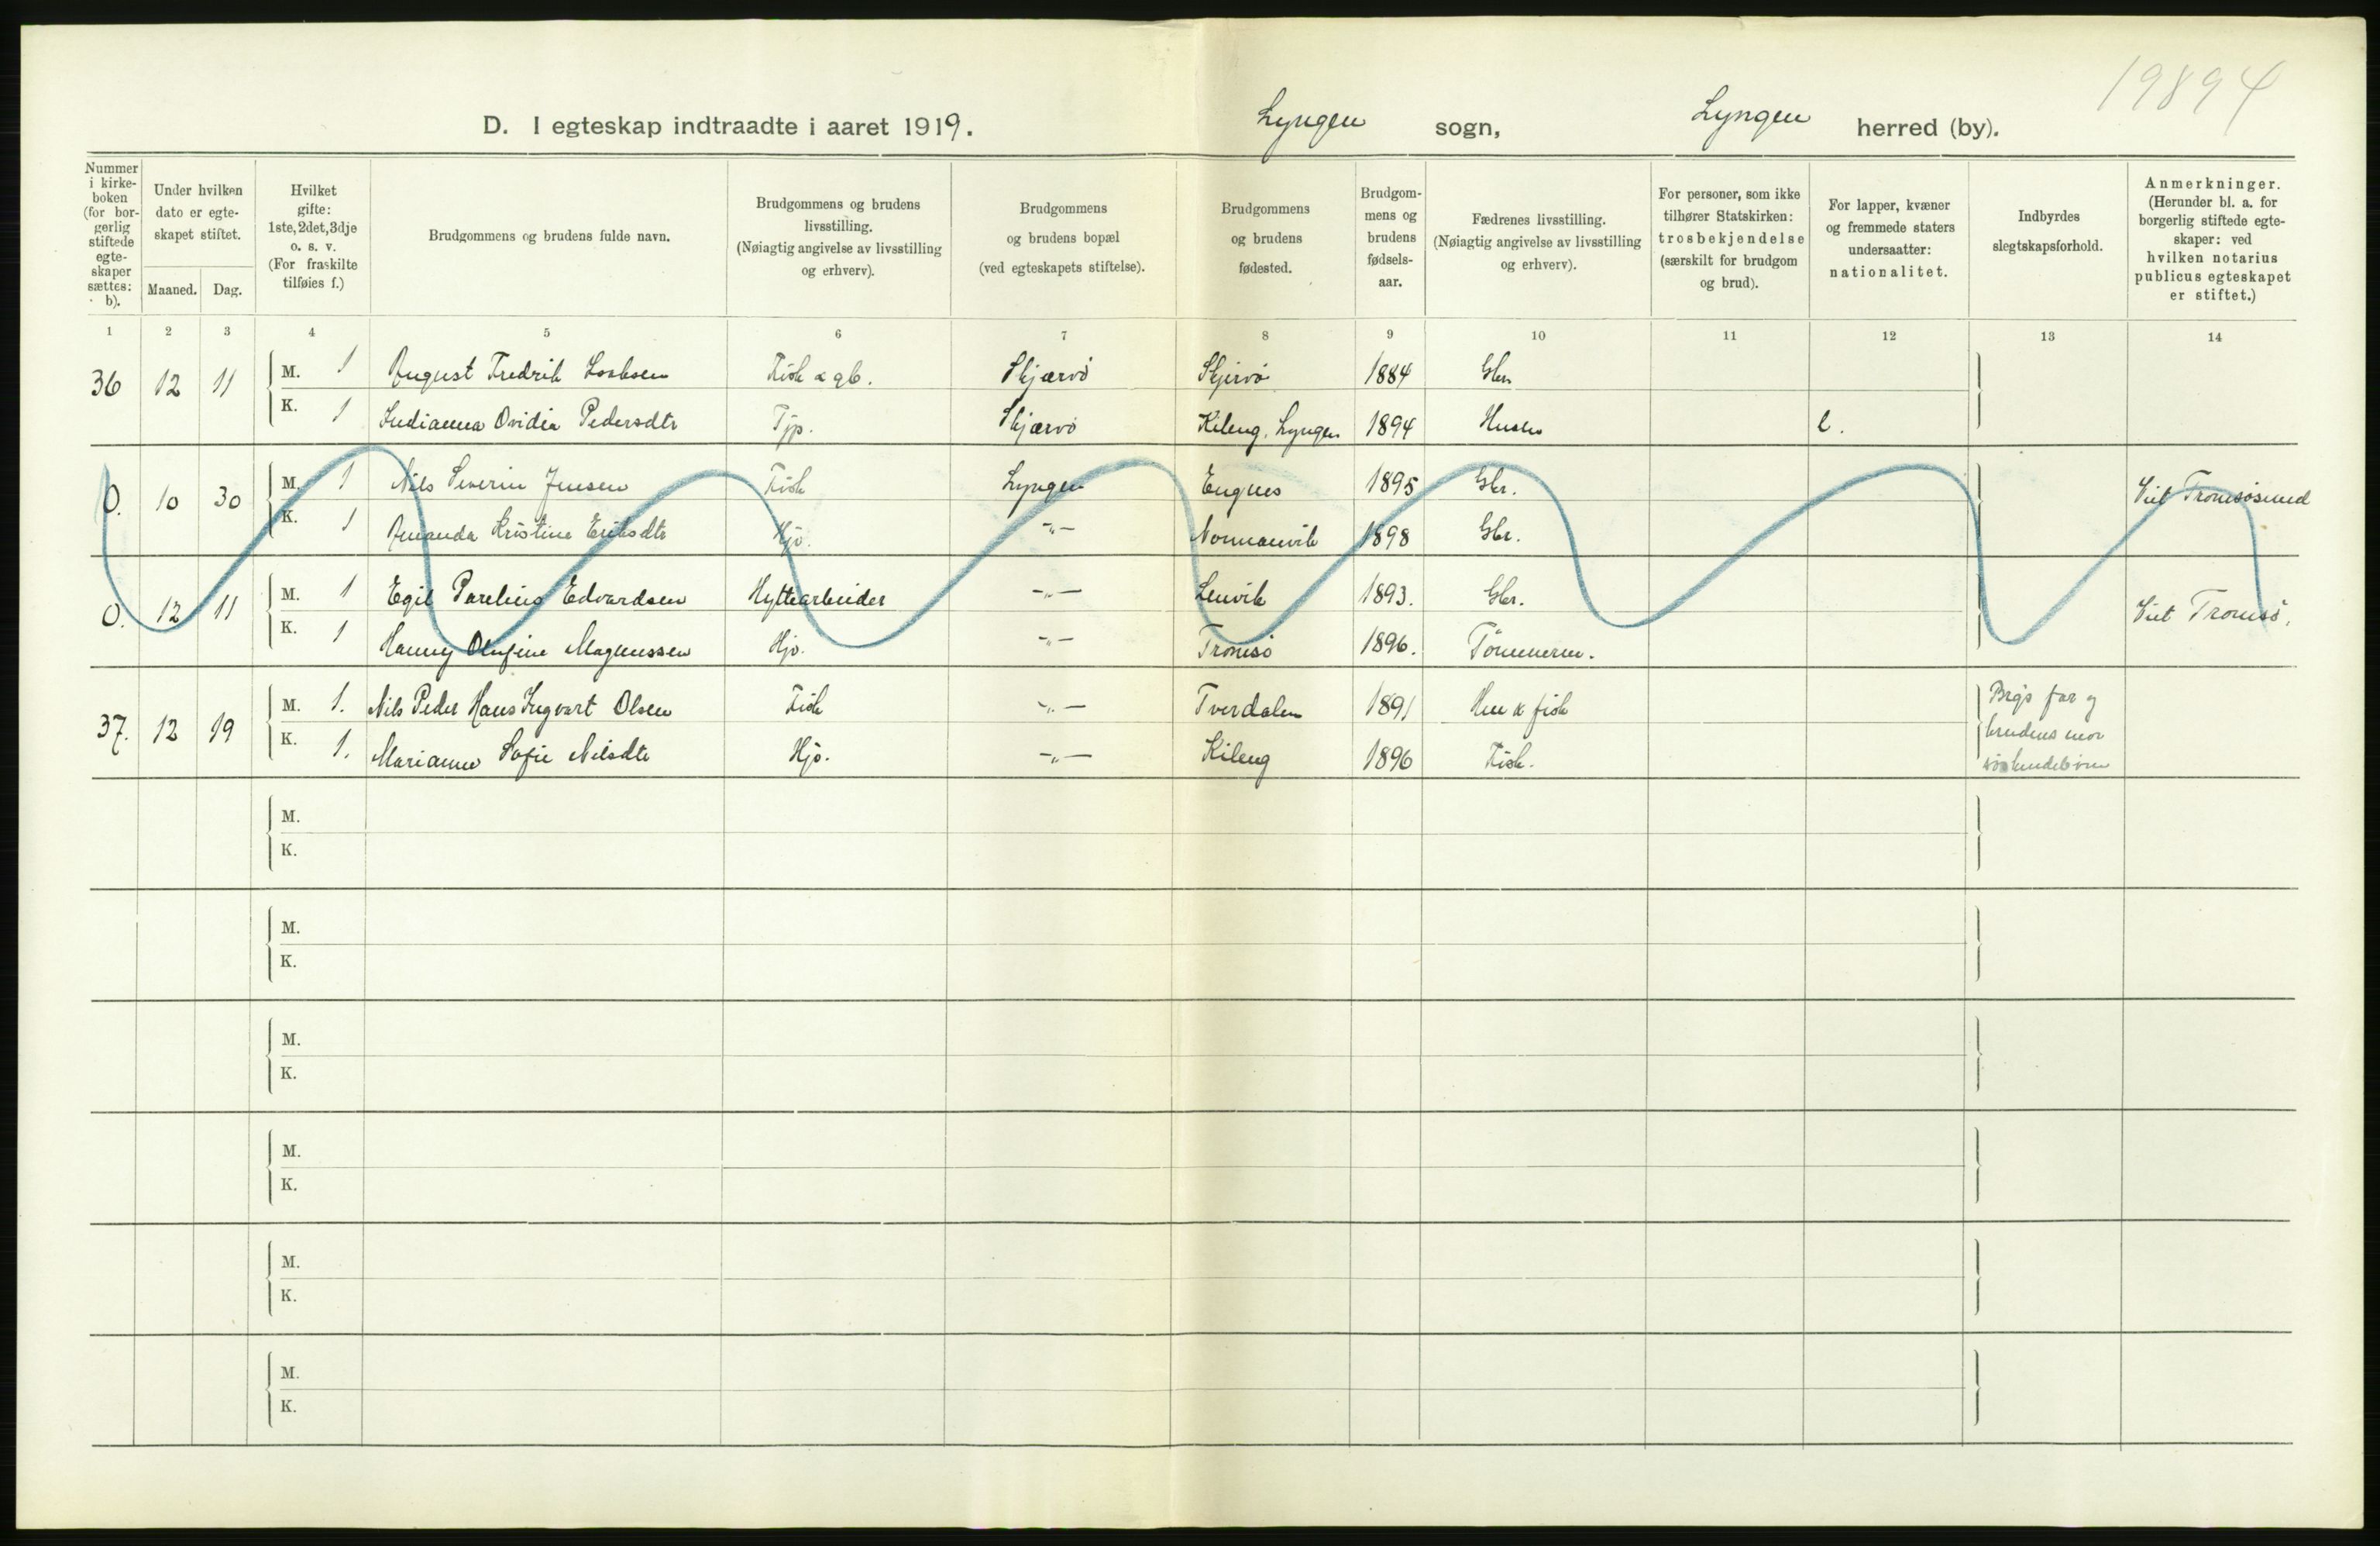 19894
D. I egteskap indtraadte i aaret 1919. Lyngen sogn, Lyngen herred (by).
Nummer i kirke-boken (for bor-gerlig stiftede egte-skaper sættes: b).
Under hvilken dato er egte-skapet stiftet.
Maaned. Dag.
Hvilket gifte: 1ste, 2det, 3dje o. s. v. (For fraskilte tilføies f.)
Brudgommens og brudens fulde navn.
Brudgommens og brudens livsstilling. (Nøiagtig angivelse av livsstilling og erhverv).
Brudgommens og brudens bopæl (ved egteskapets stiftelse).
Brudgommens og brudens fødested.
Brudgom-mens og brudens fødsels-aar.
Fædrenes livsstilling. (Nøiagtig angivelse av livsstilling og erhverv).
For personer, som ikke tilhører Statskirken: trosbekjendelse (særskilt for brudgom og brud).
For lapper, kvæner og fremmede staters undersaatter: nationalitet.
Indbyrdes slegtskapsforhold.
Anmerkninger. (Herunder bl. a. for borgerlig stiftede egte-skaper: ved hvilken notarius publicus egteskapet er stiftet.)
1 2 3 4 5 6 7 8 9 10 11 12 13 14
36 12 11 M. 1 August Fredrik Isaksen Fisk & gb. Skjærvö Skjervö 1884 Gbr
K. 1 Ovidia Pedersdtr Tjp. Skjærvö Kileng, Lyngen 1894 Husm l.
0. 10 30 M. 1 Nils Severin Jensen Fisk Lyngen Engnes 1895 Gbr. Viet Tromsösund
K. 1 Amanda Kristine Eriksdtr Hjö. -"- Normanvik 1898 Gbr.
0. 12 11 M. 1 Egil Parelius Edvardsen Hyttearbeider -"- Lenvik 1893. Gbr. Viet Tromsö.
K. 1 Hanny Olufine Magnussen Hjö. -"- Tromsö 1896. Tömmerm.
37. 12 19 M. 1. Nils Peder Hans Ingvart Olsen Fisk -"- Tverdalen 1891 Hm & fisk Brgs far og
K. 1. Marianne Sofie Nilsdtr Hjö. -"- Kileng 1896 Fisk. brudens mor
söskendebörn
M.
K.
M.
K.
M.
K.
M.
K.
M.
K.
M.
K.